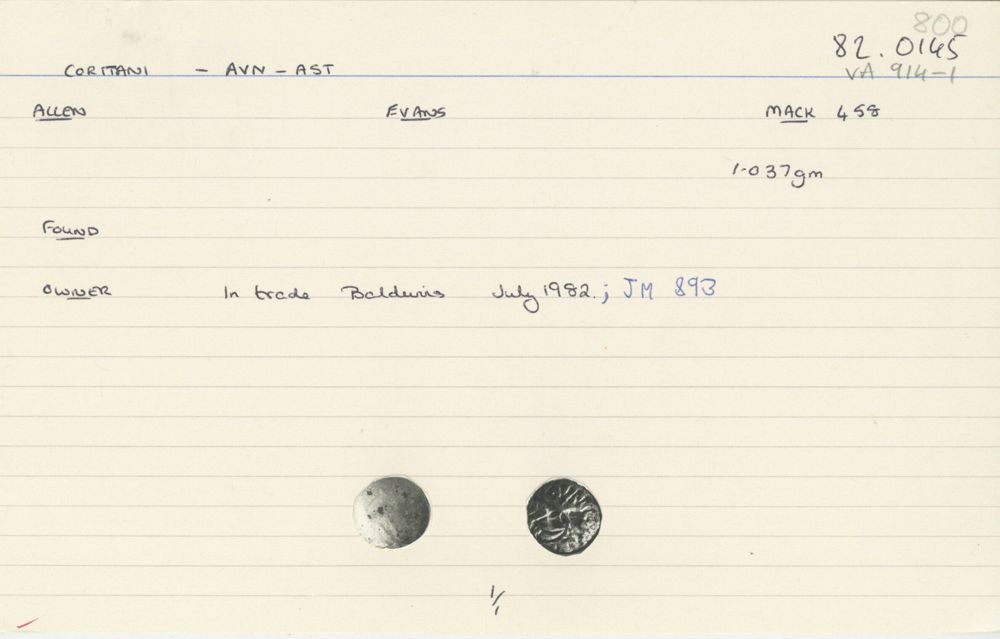 800
82.0145
CORITANI - AVN - AST
VA 914-1
ALLEN EVANS MACK 458
1.037gm
FOUND
OWNER In trade Baldwins July 1982.; JM 893
1/1